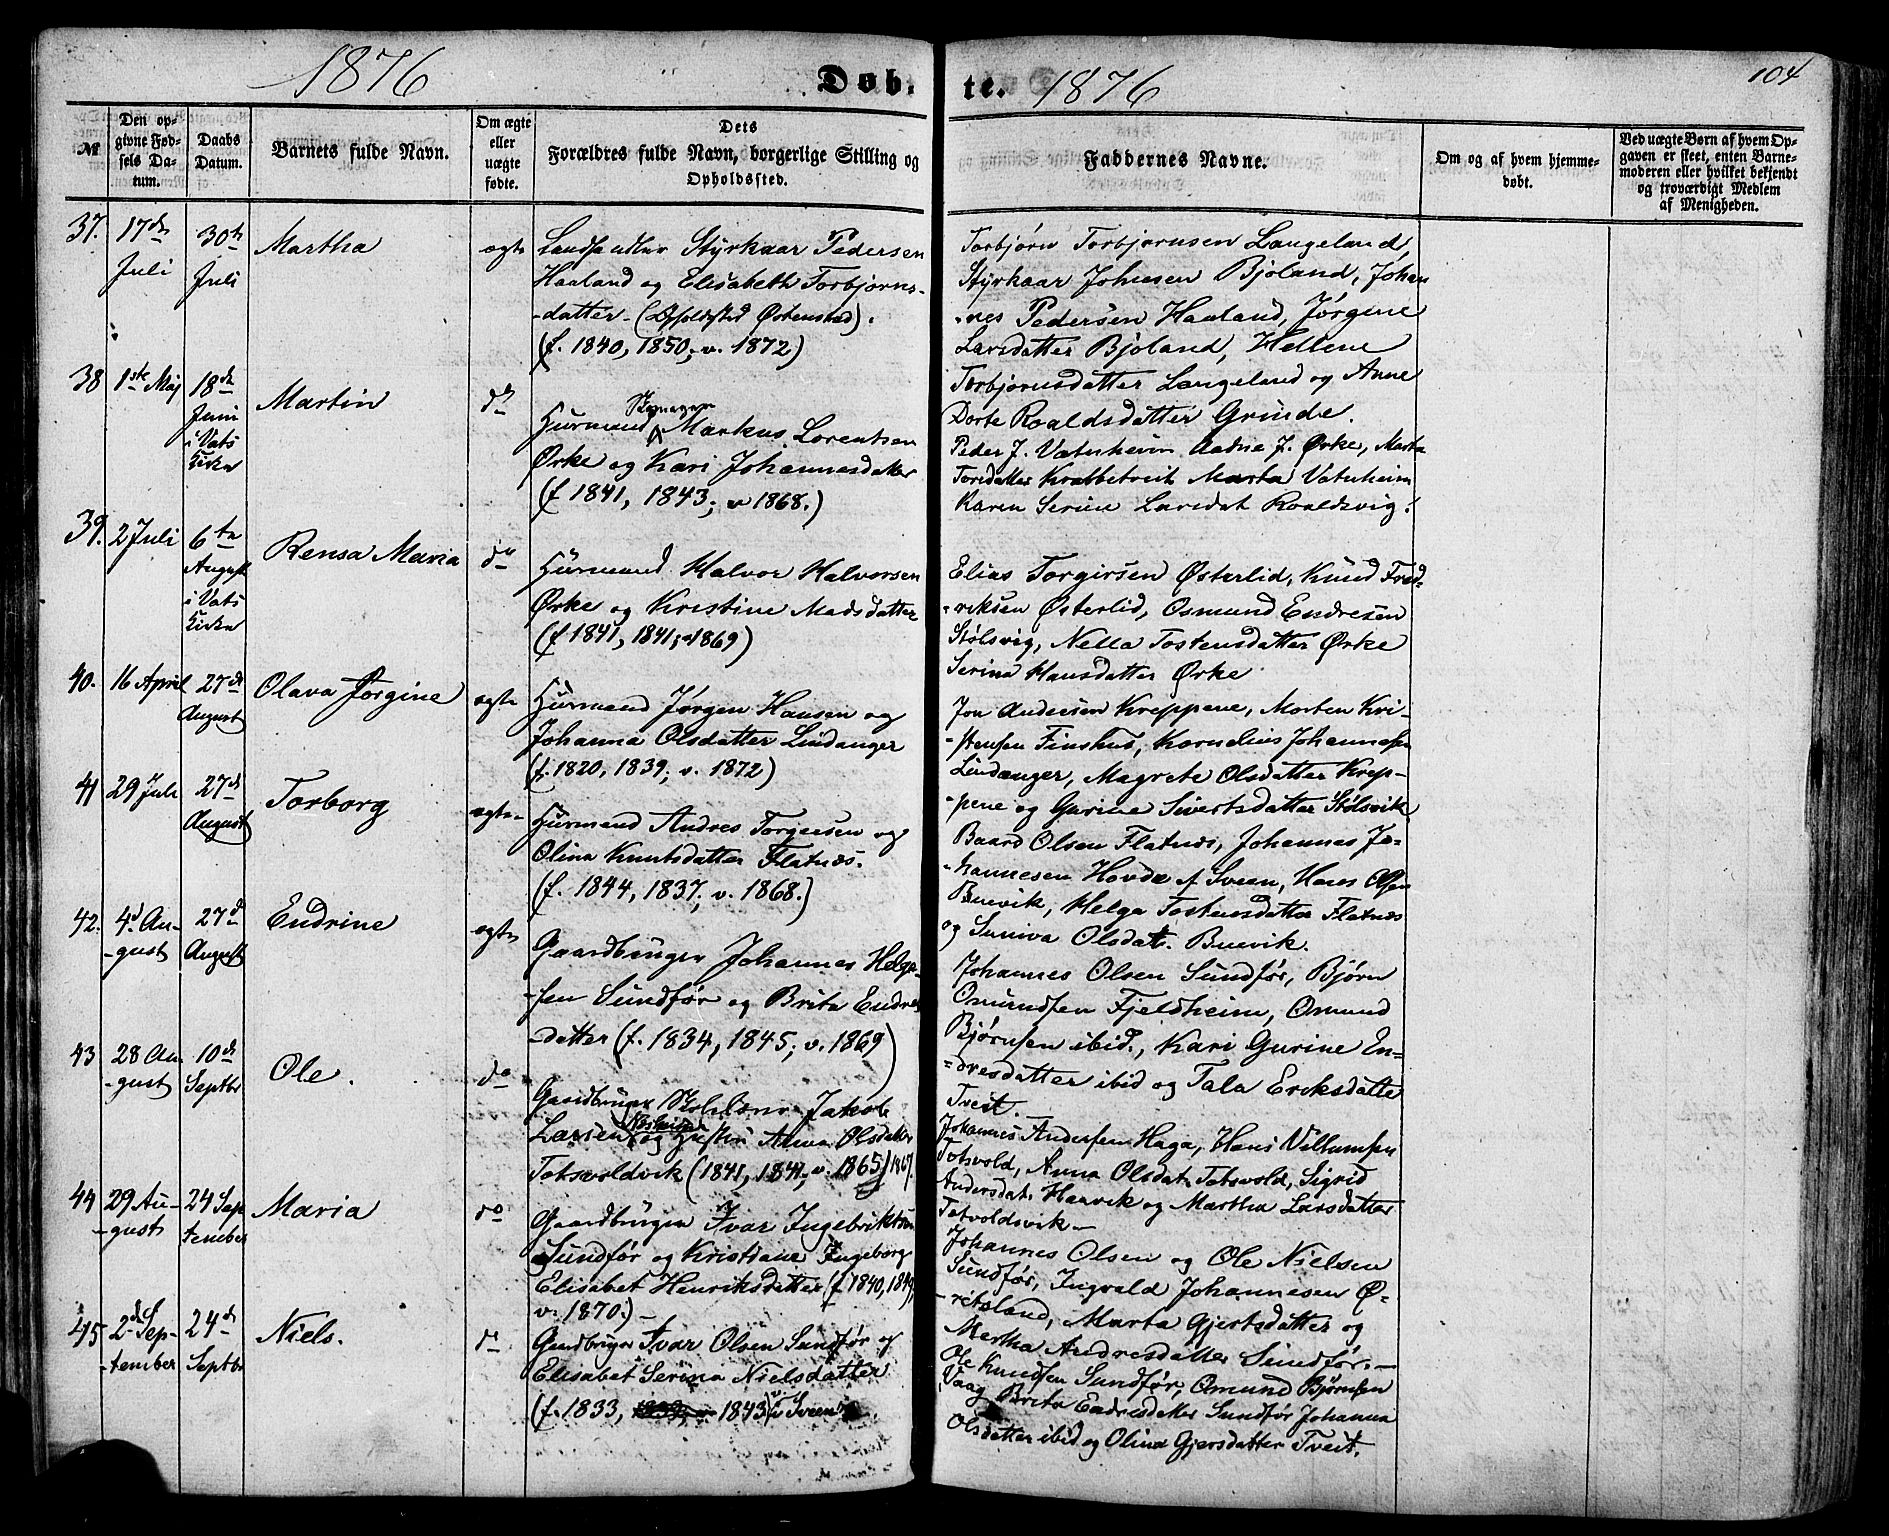 1876
Døbte.
1876
104
№
Den opgivne Fødsels Datum.
Daabs Datum.
Barnets fulde Navn.
Om ægte eller uægte fødte.
Dets Forældres fulde Navn, borgerlige Stilling og Opholdssted.
Faddernes Navne.
Om og af hvem hjemmedøbt.
Ved uægte Børn af hvem Opgaven er skeet, enten Barnemoderen eller hvilket bekjendt og troværdigt Medlem af Menigheden.
37.
17de
Juli
30te
Juli
Martha
ægte
Styrkaar Pedersen
Haaland og Elisabeth Torbjørns-
-datter- (Opholdssted Østenstad).
(f. 1840, 1850, v. 1872)
Torbjørn Torbjørnsen Langeland,
Styrkaar Johnesen Bjoland, Johan
-nes Pedersen Haaland, Jørgine
Larsdatter Bjoland, Hellene
Torbjørnsdatter Langeland og Anne
Dorte Roaldsdatter Grinde.
38
1ste Maj
18de
Juni
i Vats
Kirke
Martin
do
Huusmand Markus Lorentsen
Ørke og Kari Johannesdatter
(f 1841, 1843; v 1868.)
Peder J. Vatnheim Aadne J. Ørke, Marta
Toresdatter Krabbetveit Marta Vatnheim
Karen Serine Larsdat Roaldsvig.
39.
2 Juli
6te
August
i Vats
Kirke
Rensa Maria
do
Huusmand Halvor Halvorsen
Ørke og Kristine Madsdatter
(f 1841, 1841; v 1869)
Elias Torgirsen Østerlid, Knud Fred-
-riksen Østerlid, Osmund Endresen
Stølsvig, Nella Tostensdatter Ørke
Serina Hansdatter Ørke
40.
16 April
27de
August
Olava Jørgine
ægte
Huusmand Jørgen Hansen og
Johanna Olsdatter Lindanger
(f. 1820, 1839; v. 1872)
Jon Andersen Kreppene, Morten Kri-
-stensen Finshus, Kornelius Johannesen
Lindanger, Magrete Olsdatter Krep-
-pene og Gurine Sivertsdatter Stølsvik
41
29 Juli
27de
August
Torborg
ægte-
Huusmand Andres Torgersen og
Olina Knutsdatter Flatnæs.
(f. 1844, 1837; v. 1868.)
Baard Olsen Flatnæs, Johannes Jo-
-hannesen Hovda af Sveen, Hans Olsen
Buevik, Helga Tostensdatter Flatnæs
og Suniva Olsdat. Buevik.
42.
4d Au-
-gust
27d
August
Endrine
ægte
Gaardbruger Johannes Helge-
-sen Sundfør og Brita Endres
-datter (f. 1834, 1845; v. 1869)
Johannes Olsen Sundfør, Bjørn
Omundsen Fjeldheim, Omund
Bjørnsen ibid., Kari Gurine En-
-dresdatter ibid og Tala Eriksdatter
Tveit.
43
28 Au-
-gust
10de
Septbr
Ole.
do
Gaardbruger Jakob
Larsen og Hustru Anna Olsdatter
Totsvoldvik (1841, 1841, v. 1865) 1867.
Johannes Andersen Haga, Hans Villumsen
Totsvold, Anna Olsdat. Totsvold, Sigrid
Andersdat. Haavik og Martha Larsdatter
Totvoldsvik-
44
29 Au-
-gust
24 Sep
tember
Maria
do
Gaardbruger Ivar Ingebriktsen
Sundfør og Kristiane Ingeborg
Elisabet Henriksdatter (f 1840, 1849,
v. 1870.)-
Johannes Olsen og Ole Nielsen
Sundfør, Ingvald Johannesen Ø-
-vretsland, Marta Gjertsdatter og
Martha Andresdatter Sundfør.-
45
2d Sep-
-tember
24d
Septbr
Niels.
do
Gaardbruger Ivar Olsen Sundfør og
Elisabet Serina Nielsdatter
(f. 1833, 1843 v i Sveen
Ole Knudsen Sundfør, Omund Bjørnsen
Vaag Brita Endresdatter Sundfør Johanna
Olsdatter ibid og Olina Gjersdatter Tveit.